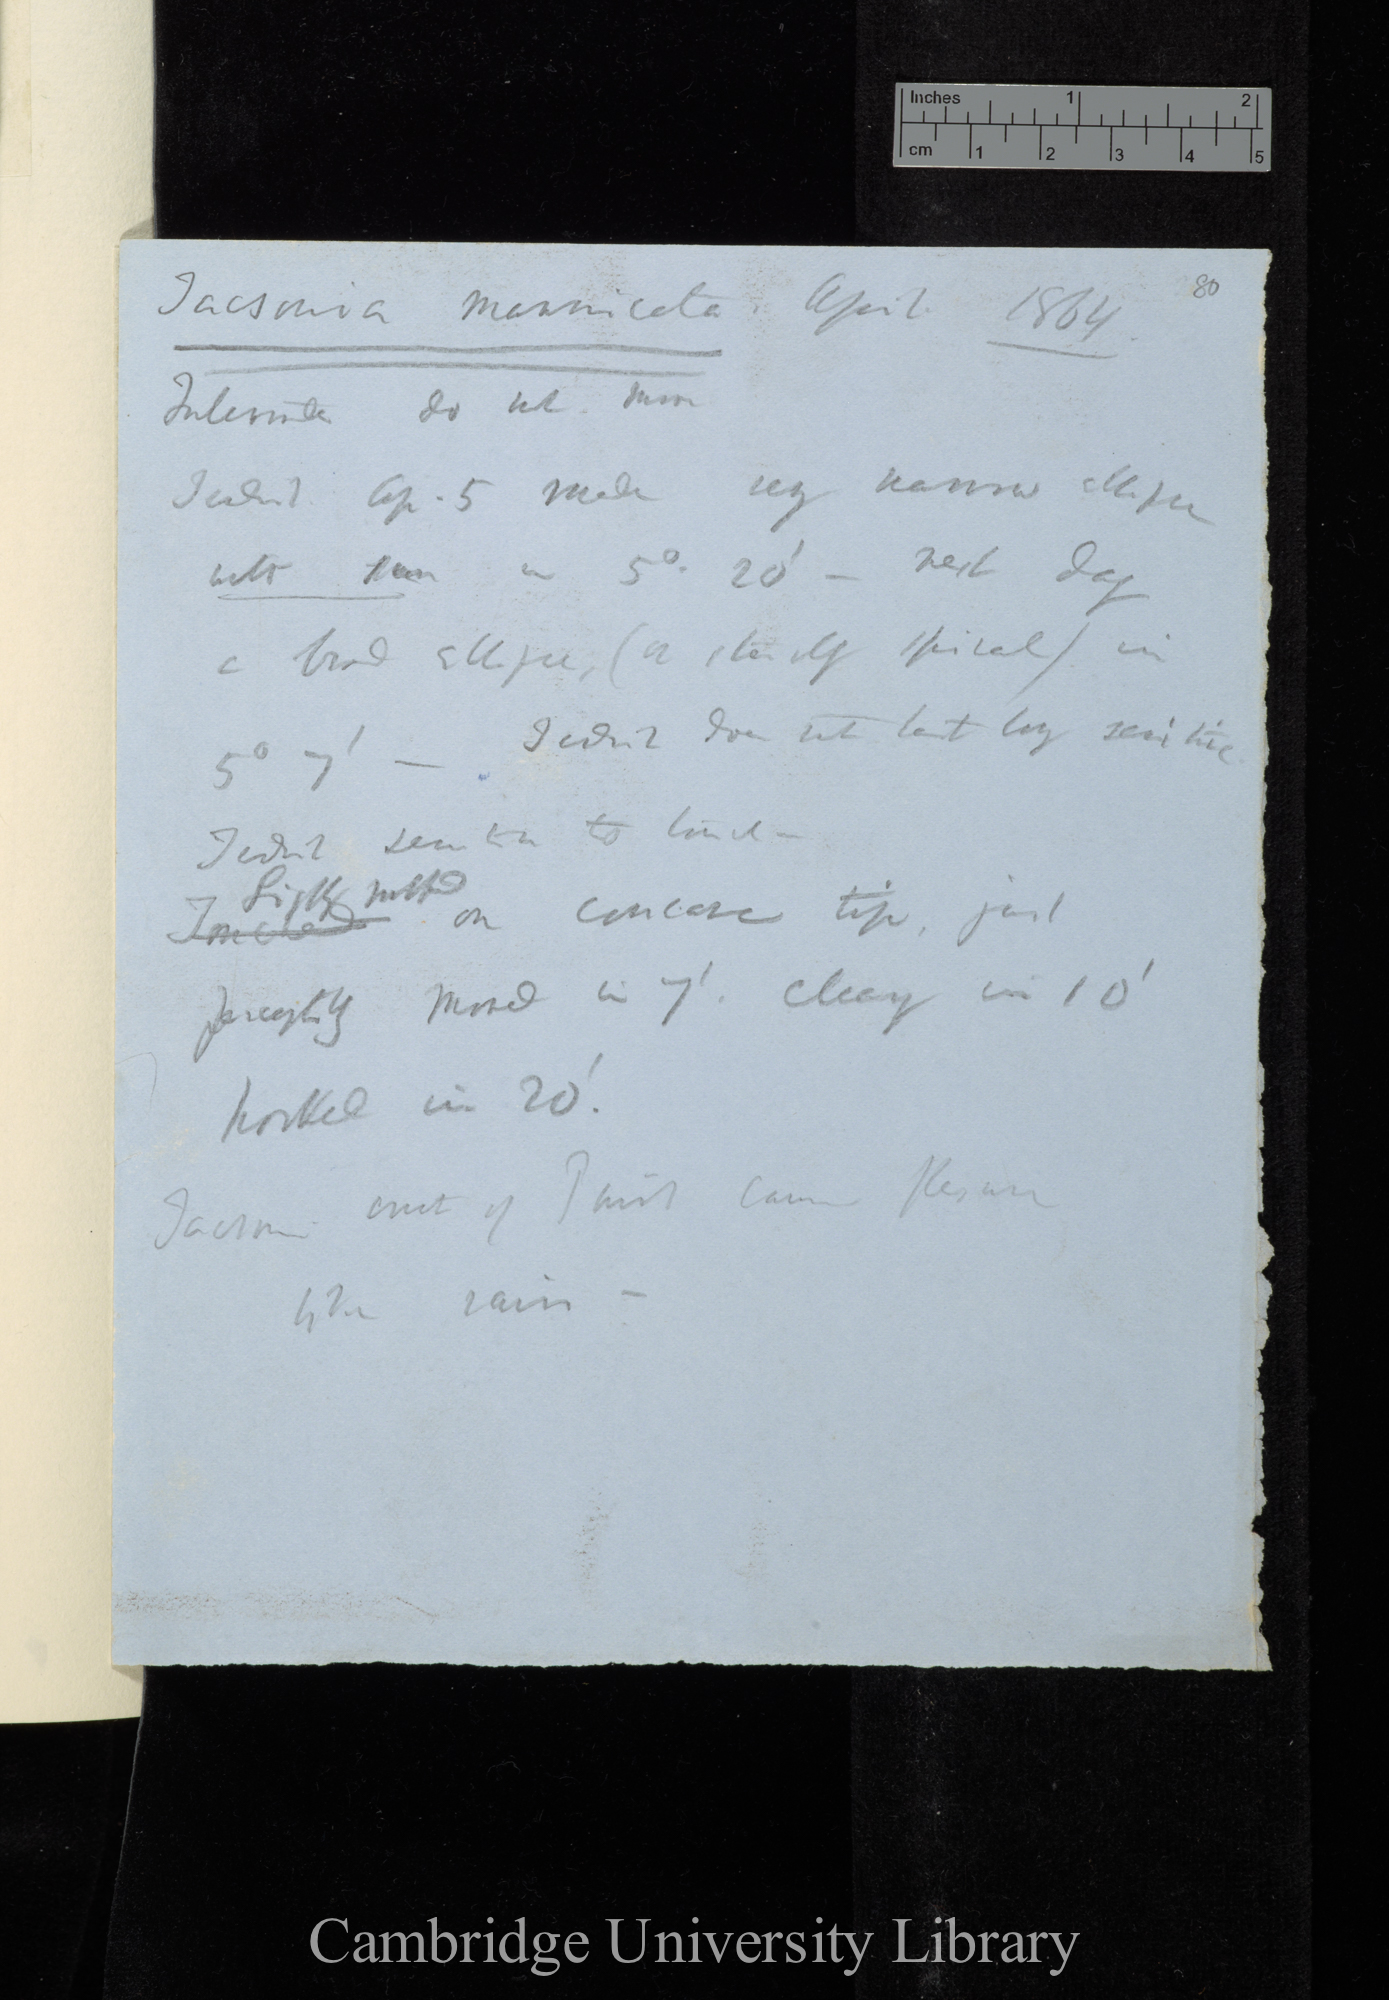 Inches 1 2
cm 1 2 3 4 5
80
Tacsonia mannicata. April. 1864.
Internodes do not move
Tendril Ap. 5 made very narrow ellipse
with sun in 5° 20' — next day
a broad ellipse, (or spiral) in
5° 7' — Tendril does not last long sensitive.
Tendril sensitive to touch —
Lightly rubbed
Touched on concave tip, just
perceptibly moved in 7'. clearly in 10'
hooked in 20'.
Tacsonia of
like rain —
Cambridge University Library